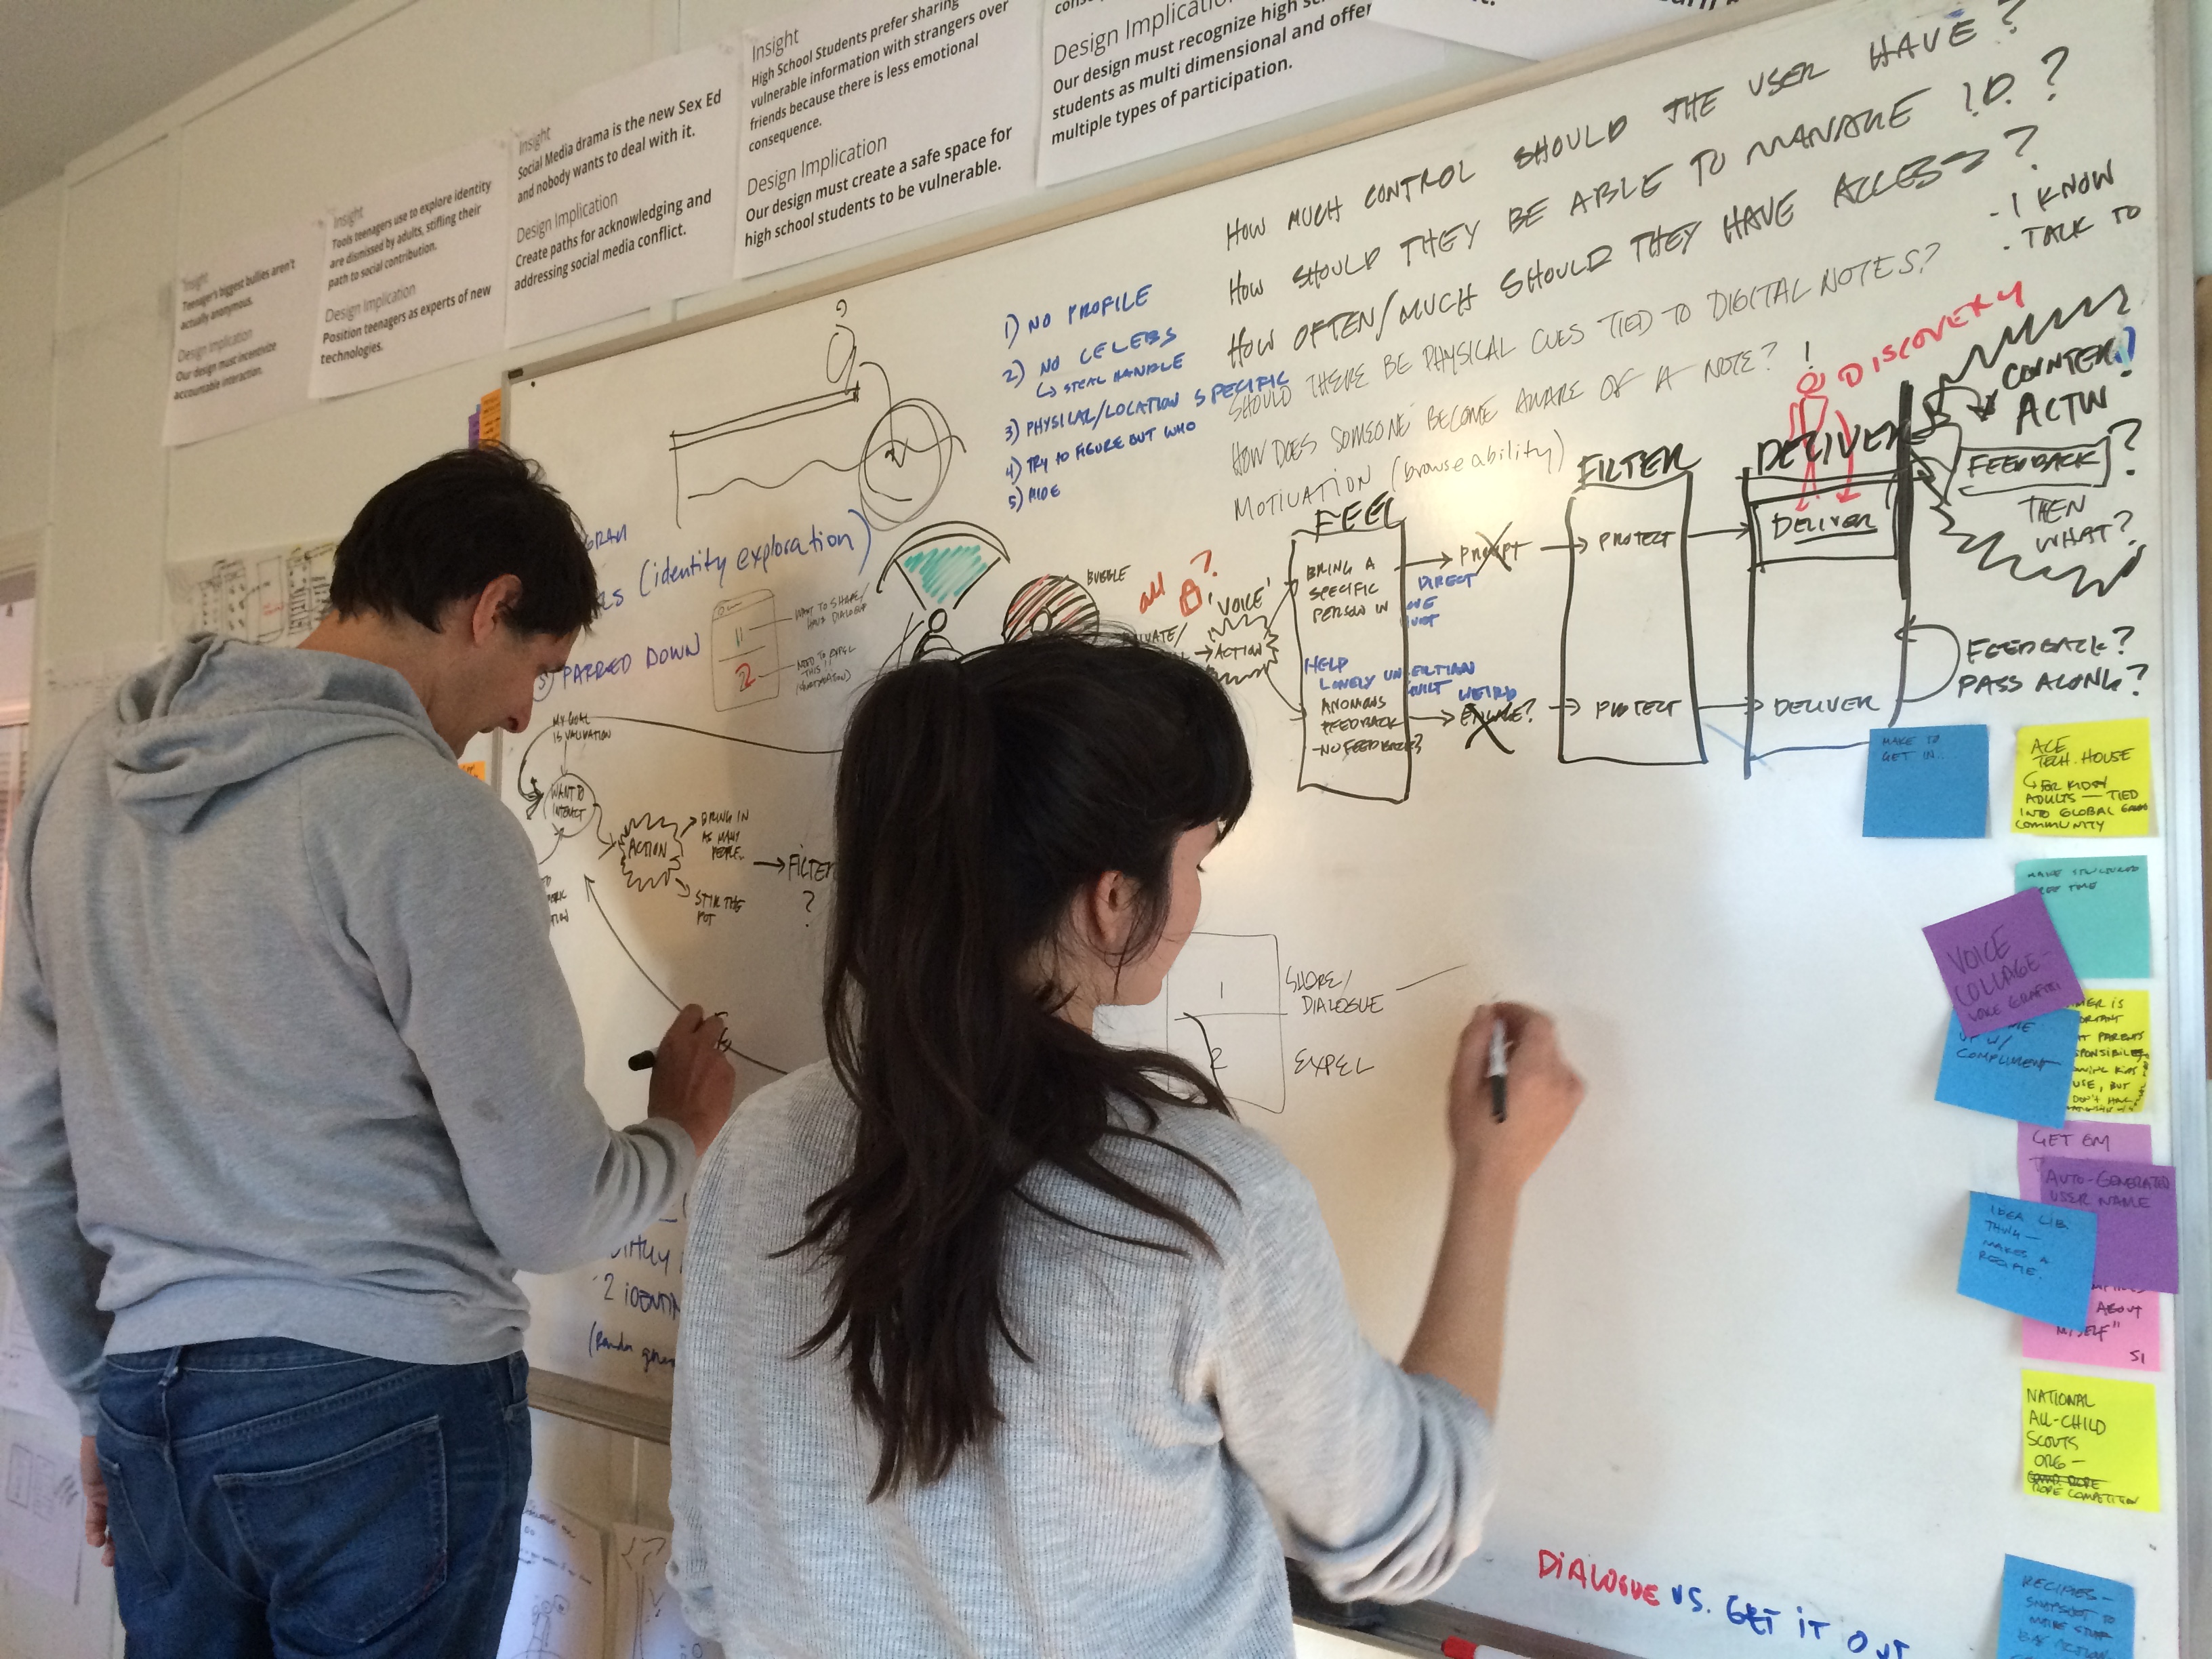 Insight
Teenager's biggest bullies aren't
actually anonymous.
Design Implication
Our design must incentivize
accountable interaction.
Insight
Tools teenagers use to explore identity
are dismissed by adults, stifling their
path to social contribution.
Design Implication
Position teenagers as experts of new
technologies.
Insight
Social Media drama is the new Sex Ed
and nobody wants to deal with it.
Design Implication
Create paths for acknowledging and
addressing social media conflict.
Insight
High School Students prefer sharing
vulnerable information with strangers over
friends because there is less emotional
consequence.
Design Implication
Our design must create a safe space for
high school students to be vulnerable.
Design Implication
Our design must recognize high
students as multi dimensional and offer
multiple types of participation.
HOW MUCH CONTROL SHOULD THE USER HAVE?
HOW SHOULD THEY BE ABLE TO MANAGE I.D.?
HOW OFTEN/MUCH SHOULD THEY HAVE ACCESS?
SHOULD THERE BE PHYSICAL CUES TIED TO DIGITAL NOTES?
HOW DOES SOMEONE BECOME AWARE OF A NOTE?
MOTIVATION (browse ability)
- I KNOW
- TALK TO
1) NO PROFILE
2) NO CELEBS
↳ STEAL HANDLE
3) PHYSICAL/LOCATION SPECIFIC
4) TRY TO FIGURE OUT WHO
5) HIDE
(identity exploration)
5 PARRED DOWN
WANT TO SHARE/
HAVE DIALOGUE
NEED TO EXPEL
THIS!!
11
2
BUBBLE
all
?
VOICE
→ ACTION
FEEL
BRING A
SPECIFIC
PERSON IN
PROMPT
DIRECT
HELP
LONELY
ANOMOUS
FEEDBACK
-NO FEEDBACK?
GUILT
WEIRD
ENGAGE?
FILTER
PROTECT
PROTECT
DELIVER
DELIVER
DELIVER
! DISCOVERY
COUNTER!
ACTN
FEEDBACK ?
THEN
WHAT?
FEEDBACK?
PASS ALONG?
MY GOAL
IS VALIDATION
WANT TO
INTERACT
ACTION
BRING IN
AS MANY
PEOPLE..
STIR THE
POT
→ FILTER
?
1
SHARE/
DIALOGUE
2
EXPEL
2 IDENTI
MAKE TO
GET IN..
ACE
TECH. HOUSE
↳ FOR KIDS/
ADULTS — TIED
INTO GLOBAL
COMMUNITY
MAKE STRUCTURED
FREE TIME
VOICE
COLLAGE -
VOICE GRAFFITI
W/
COMPLIMENT
PARENTS
USE, BUT
DON'T HAVE
GET EM
AUTO-GENERATED
USER NAME
IDEA LIB
THING —
MAKES A
RECIPE.
ABOUT
MYSELF"
SI
NATIONAL
ALL-CHILD
SCOUTS
ORG —
ROPE COMPETITION
RECIPES —
SNAPSHOT TO
MAKE STUFF
DIALOGUE VS. GET IT OUT